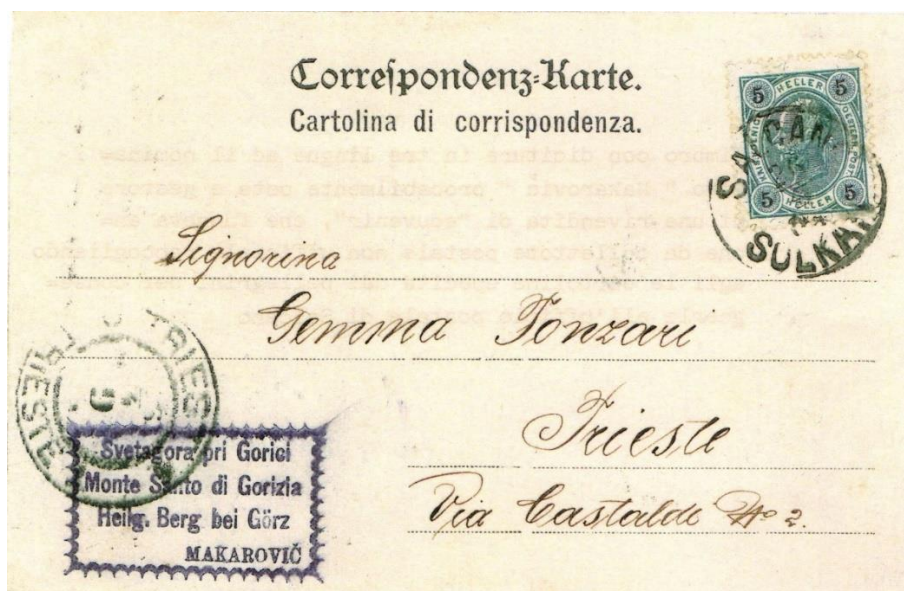 Correſpondenz-Karte.
Cartolina di corrispondenza.
5 HELLER 5
5 HELLER 5
SOLKAN
Signorina
Gemma Fonzari
Trieste
Via Castaldi No 2.
TRIEST TRIESTE
Svetagora pri Gorici
Monte Santo di Gorizia
Heilg. Berg bei Görz
MAKAROVIČ